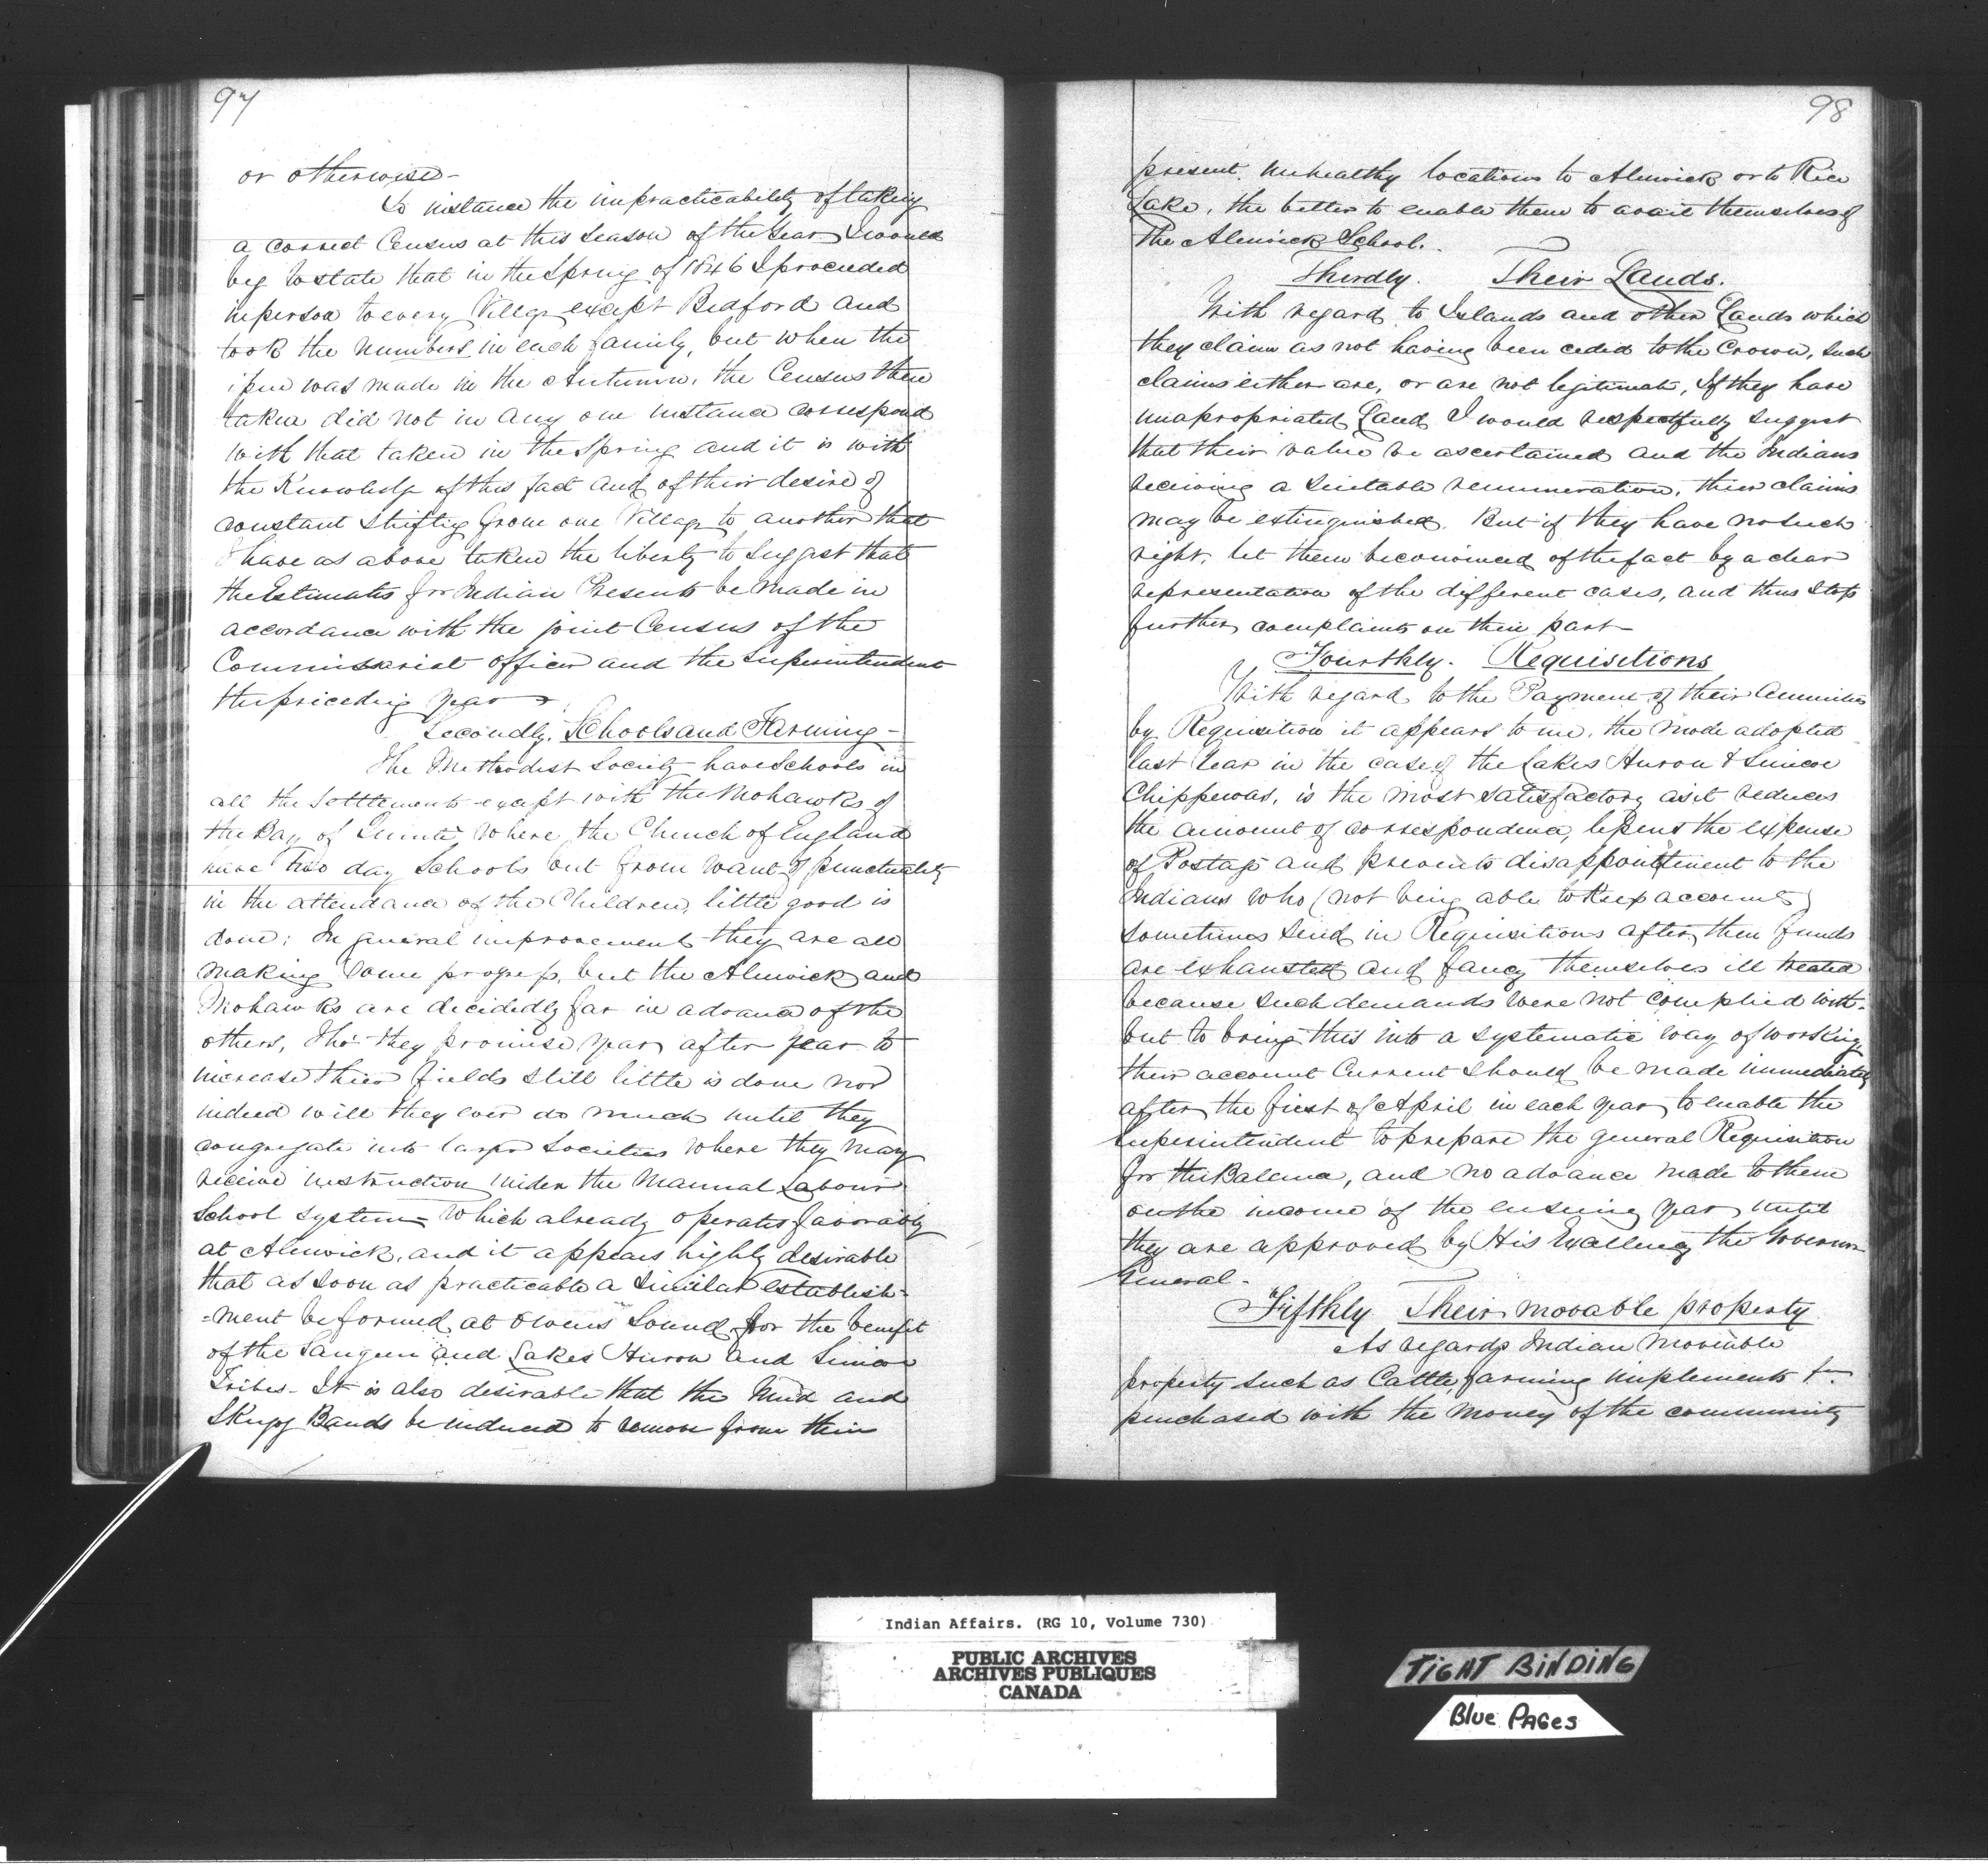 97
or otherwise—
To instance the impracticability of taking
a correct Census at this Season of the Year I would
beg to state that in the Spring of 1846 I proceeded
in person to every Village except Bedford and
took the numbers in each family, but when the
issue was made in the Autumn, the Census then
taken did not in any one instance correspond
with that taken in the Spring and it is with
the Knowledge of this fact and of their desire of
constant shifting from one Village to another that
I have as above taken the liberty to suggest that
the Estimates for Indian Presents be made in
accordance with the joint Census of the
Commissariat officer and the Superintendent
the preceding year
Secondly. Schools and Farming—
The Methodist Society have Schools in
all the Settlements except with the Mohawks of
the Bay of Quinté where the Church of England
have two day Schools but from want of punctuality
in the attendance of the Children, little good is
done; In general improvement they are all
making some progress, but the Alnwick and
Mohawks are decidedly far in advance of the
others, Tho' they promise year after year to
increase their fields still little is done nor
indeed will they ever do much until they
congregate into larger Societies where they may
receive instruction under the Manual Labour
School System which already operates favorably
at Alnwick, and it appears highly desirable
that as soon as practicable a similar establish-
-ment be formed at Owens Sound for the benefit
of the Saugeen and Lakes Huron and Simcoe
Tribes— It is also desirable that the Mud and
Skugog Bands be induced to remove from their
98
present unhealthy locations to Alnwick or to Rice
Lake, the better to enable them to avail themselves of
the Alnwick School.
Thirdly. Their Lands.
With regard to Islands and other Lands which
they claim as not having been ceded to the Crown, such
claims either are, or are not legitimate, If they have
unapropriated Land I would respectfully suggest
that their value be ascertained and the Indians
receiving a suitable remuneration, their claims
may be extinguished. But if they have no such
right, let them be convinced of the fact by a clear
representation of the different cases, and thus stop
further complaints on their part—
Fourthly. Requisitions
With regard to the Payment of their Annuities
by Requisition it appears to me, the mode adopted
last Year in the case of the Lakes Huron & Simcoe
Chippewas, is the most satisfactory as it reduces
the amount of correspondence, lessens the expense
of Postage and prevents disappointment to the
Indians who (not being able to keep accounts)
sometimes send in Requisitions after their funds
are exhausted and fancy themselves ill treated
because such demands were not complied with—
but to bring this into a systematic way of working
their account Current should be made immediately
after the first of April in each year to enable the
Superintendent to prepare the general Requisition
for the Balance, and no advance made to them
on the income of the ensuing year until
they are approved by His Excellency the Governor
General—
Fifthly Their movable property
As regards Indian Moveable
property such as Cattle, farming implements &c.
purchased with the money of the community
Indian Affairs. (RG 10, Volume 730)
PUBLIC ARCHIVES
ARCHIVES PUBLIQUES
CANADA
TIGHT BINDING
Blue PAGes